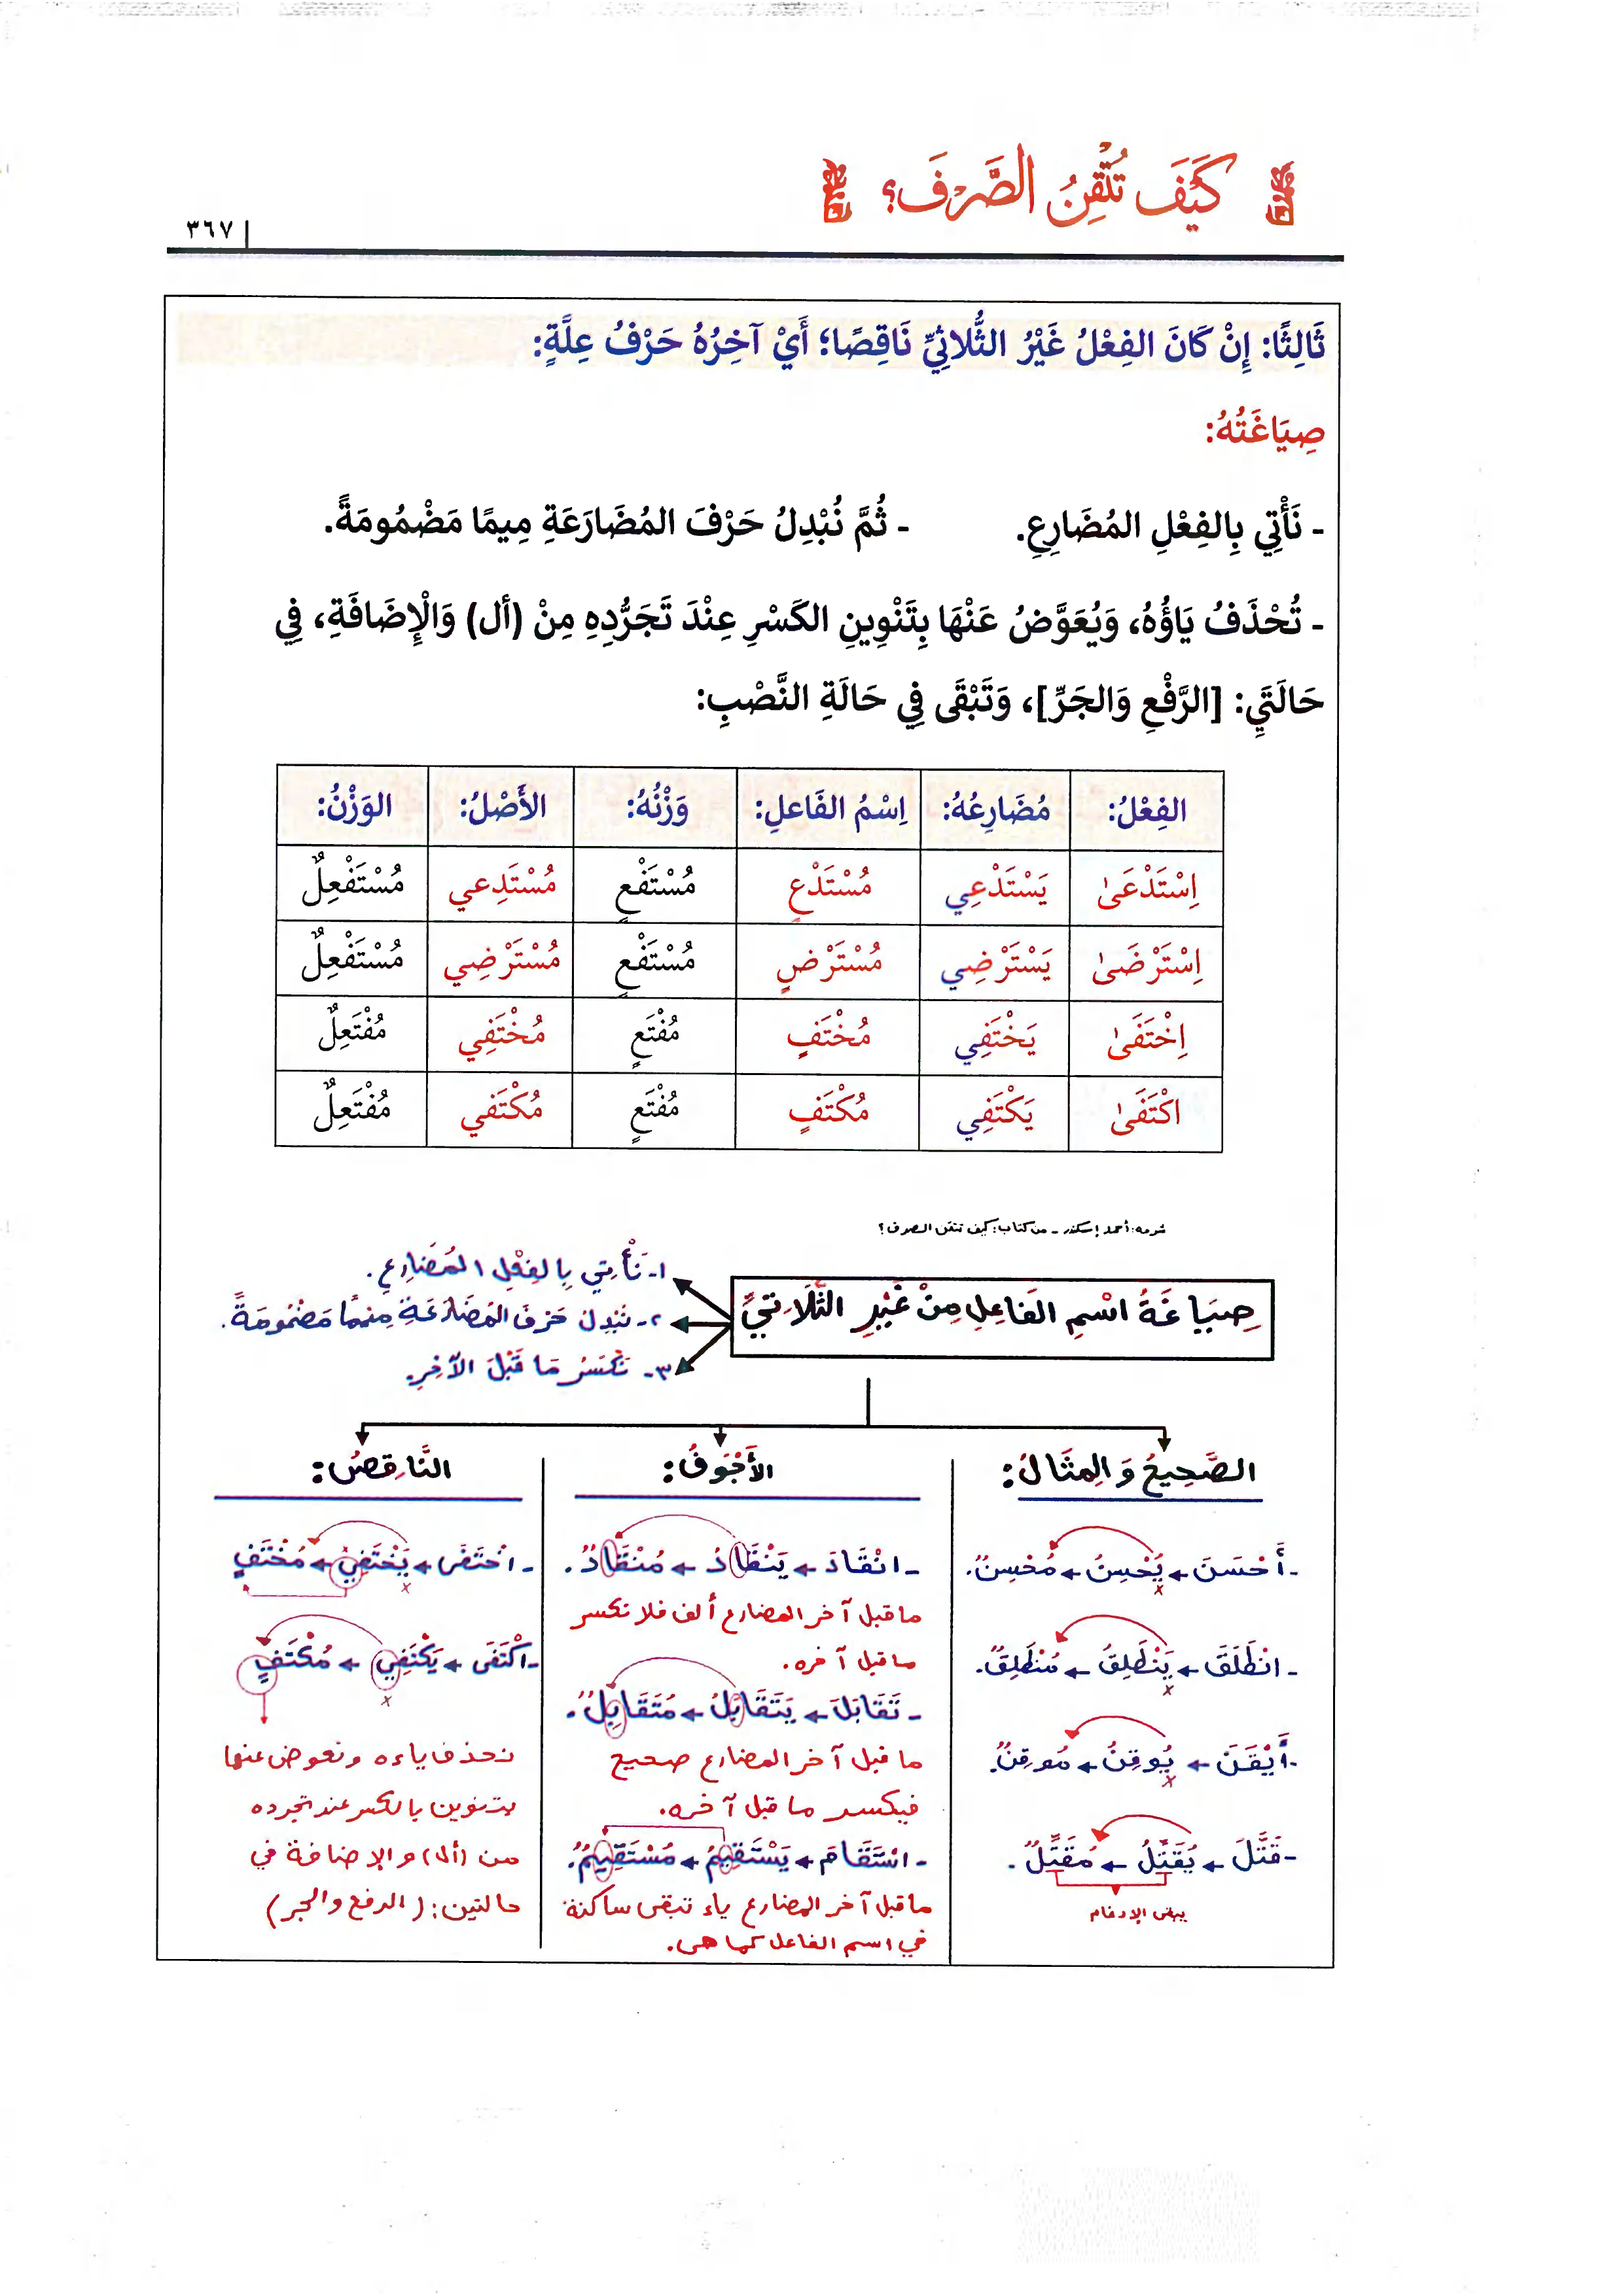 كَيْفَ تُتْقِنُ الصَّرْفَ؟
٣٦٧
ثَالِثًا: إِنْ كَانَ الفِعْلُ غَيْرُ الثُّلاثِيِّ نَاقِصًا؛ أَيْ آخِرُهُ حَرْفُ عِلَّةٍ:
صِيَاغَتُهُ:
- نَأْتِي بِالفِعْلِ المُضَارِعِ. - ثُمَّ نُبْدِلُ حَرْفَ المُضَارَعَةِ مِيمًا مَضْمُومَةً.
- تُحْذَفُ يَاؤُهُ، وَيُعَوَّضُ عَنْهَا بِتَنْوِينِ الكَسْرِ عِنْدَ تَجَرُّدِهِ مِنْ (أل) وَالْإِضَافَةِ، فِي
حَالَتَيِ: [الرَّفْعِ وَالجَرِّ]، وَتَبْقَى فِي حَالَةِ النَّصْبِ:
الفِعْلُ: مُضَارِعُهُ: اِسْمُ الفَاعلِ: وَزْنُهُ: الأَصْلُ: الوَزْنُ:
اِسْتَدْعَىٰ يَسْتَدْعِي مُسْتَدْعٍ مُسْتَفْعٍ مُسْتَدِعي مُسْتَفْعِلٌ
اِسْتَرْضَىٰ يَسْتَرْضِي مُسْتَرْضٍ مُسْتَفْعٍ مُسْتَرْضِي مُسْتَفْعِلٌ
اِخْتَفَىٰ يَخْتَفِي مُخْتَفٍ مُفْتَعٍ مُخْتَفِي مُفْتَعِلٌ
اكْتَفَىٰ يَكْتَفِي مُكْتَفٍ مُفْتَعٍ مُكْتَفي مُفْتَعِلٌ
شرحه: أحمد إسكندر - من كتاب: كيف تتقن الصرف؟
صِيَاغَةُ اسْمِ الفَاعِلِ مِنْ غَيْرِ الثُّلَاثِيِّ
١- نَأْتِي بِالفِعْلِ المُضَارِعِ.
٢- نُبْدِلُ حَرْفَ المُضَارَعَةِ مِيمًا مَضْمُومَةً.
٣- نَكْسَرُ مَا قَبْلَ الآخِرِ.
الصَّحِيحُ وَالمِثَالُ:
- أَحْسَنَ ← يُحْسِنُ ← مُحْسِنٌ.
- انْطَلَقَ ← يَنْطَلِقُ ← مُنْطَلِقٌ.
- أَيْقَنَ ← يُوقِنُ ← مُوقِنٌ.
- قَتَّلَ ← يُقَتِّلُ ← مُقَتِّلٌ.
يبقى الإدغام
الأَجْوَفُ:
- انْقَادَ ← يَنْقَادُ ← مُنْقَادٌ.
ما قبل آخر المضارع ألف فلا نكسر
ما قبل آخره.
- تَقَابَلَ ← يَتَقَابَلُ ← مُتَقَابِلٌ.
ما قبل آخر المضارع صحيح
فيكسر ما قبل آخره.
- اسْتَقَامَ ← يَسْتَقِيمُ ← مُسْتَقِيمٌ.
ما قبل آخر المضارع ياء تبقى ساكنة
في اسم الفاعل كما هى.
النَّاقِصُ:
- اخْتَفَى ← يَخْتَفِي ← مُخْتَفٍ
- اكْتَفَى ← يَكْتَفِي ← مُكْتَفٍ
نحذف ياءه ونعوض عنها
بتنوين بالكسر عند تجرده
من (أل) والإضافة في
حالتين: (الرفع والجر)